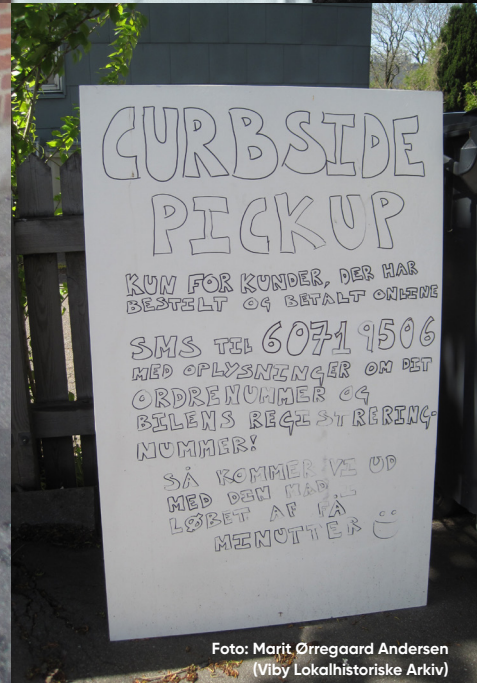 CURBSIDE
PICKUP
KUN FOR KUNDER, DER HAR
BESTILT OG BETALT ONLINE
SMS TIL 60719506
MED OPLYSNINGER OM DIT
ORDRENUMMER OG
BILENS REGISTRERING-
NUMMER!
SÅ KOMMER VI UD
MED DIN MAD
LØBET AF FÅ
MINUTTER
Foto: Marit Ørregaard Andersen
(Viby Lokalhistoriske Arkiv)